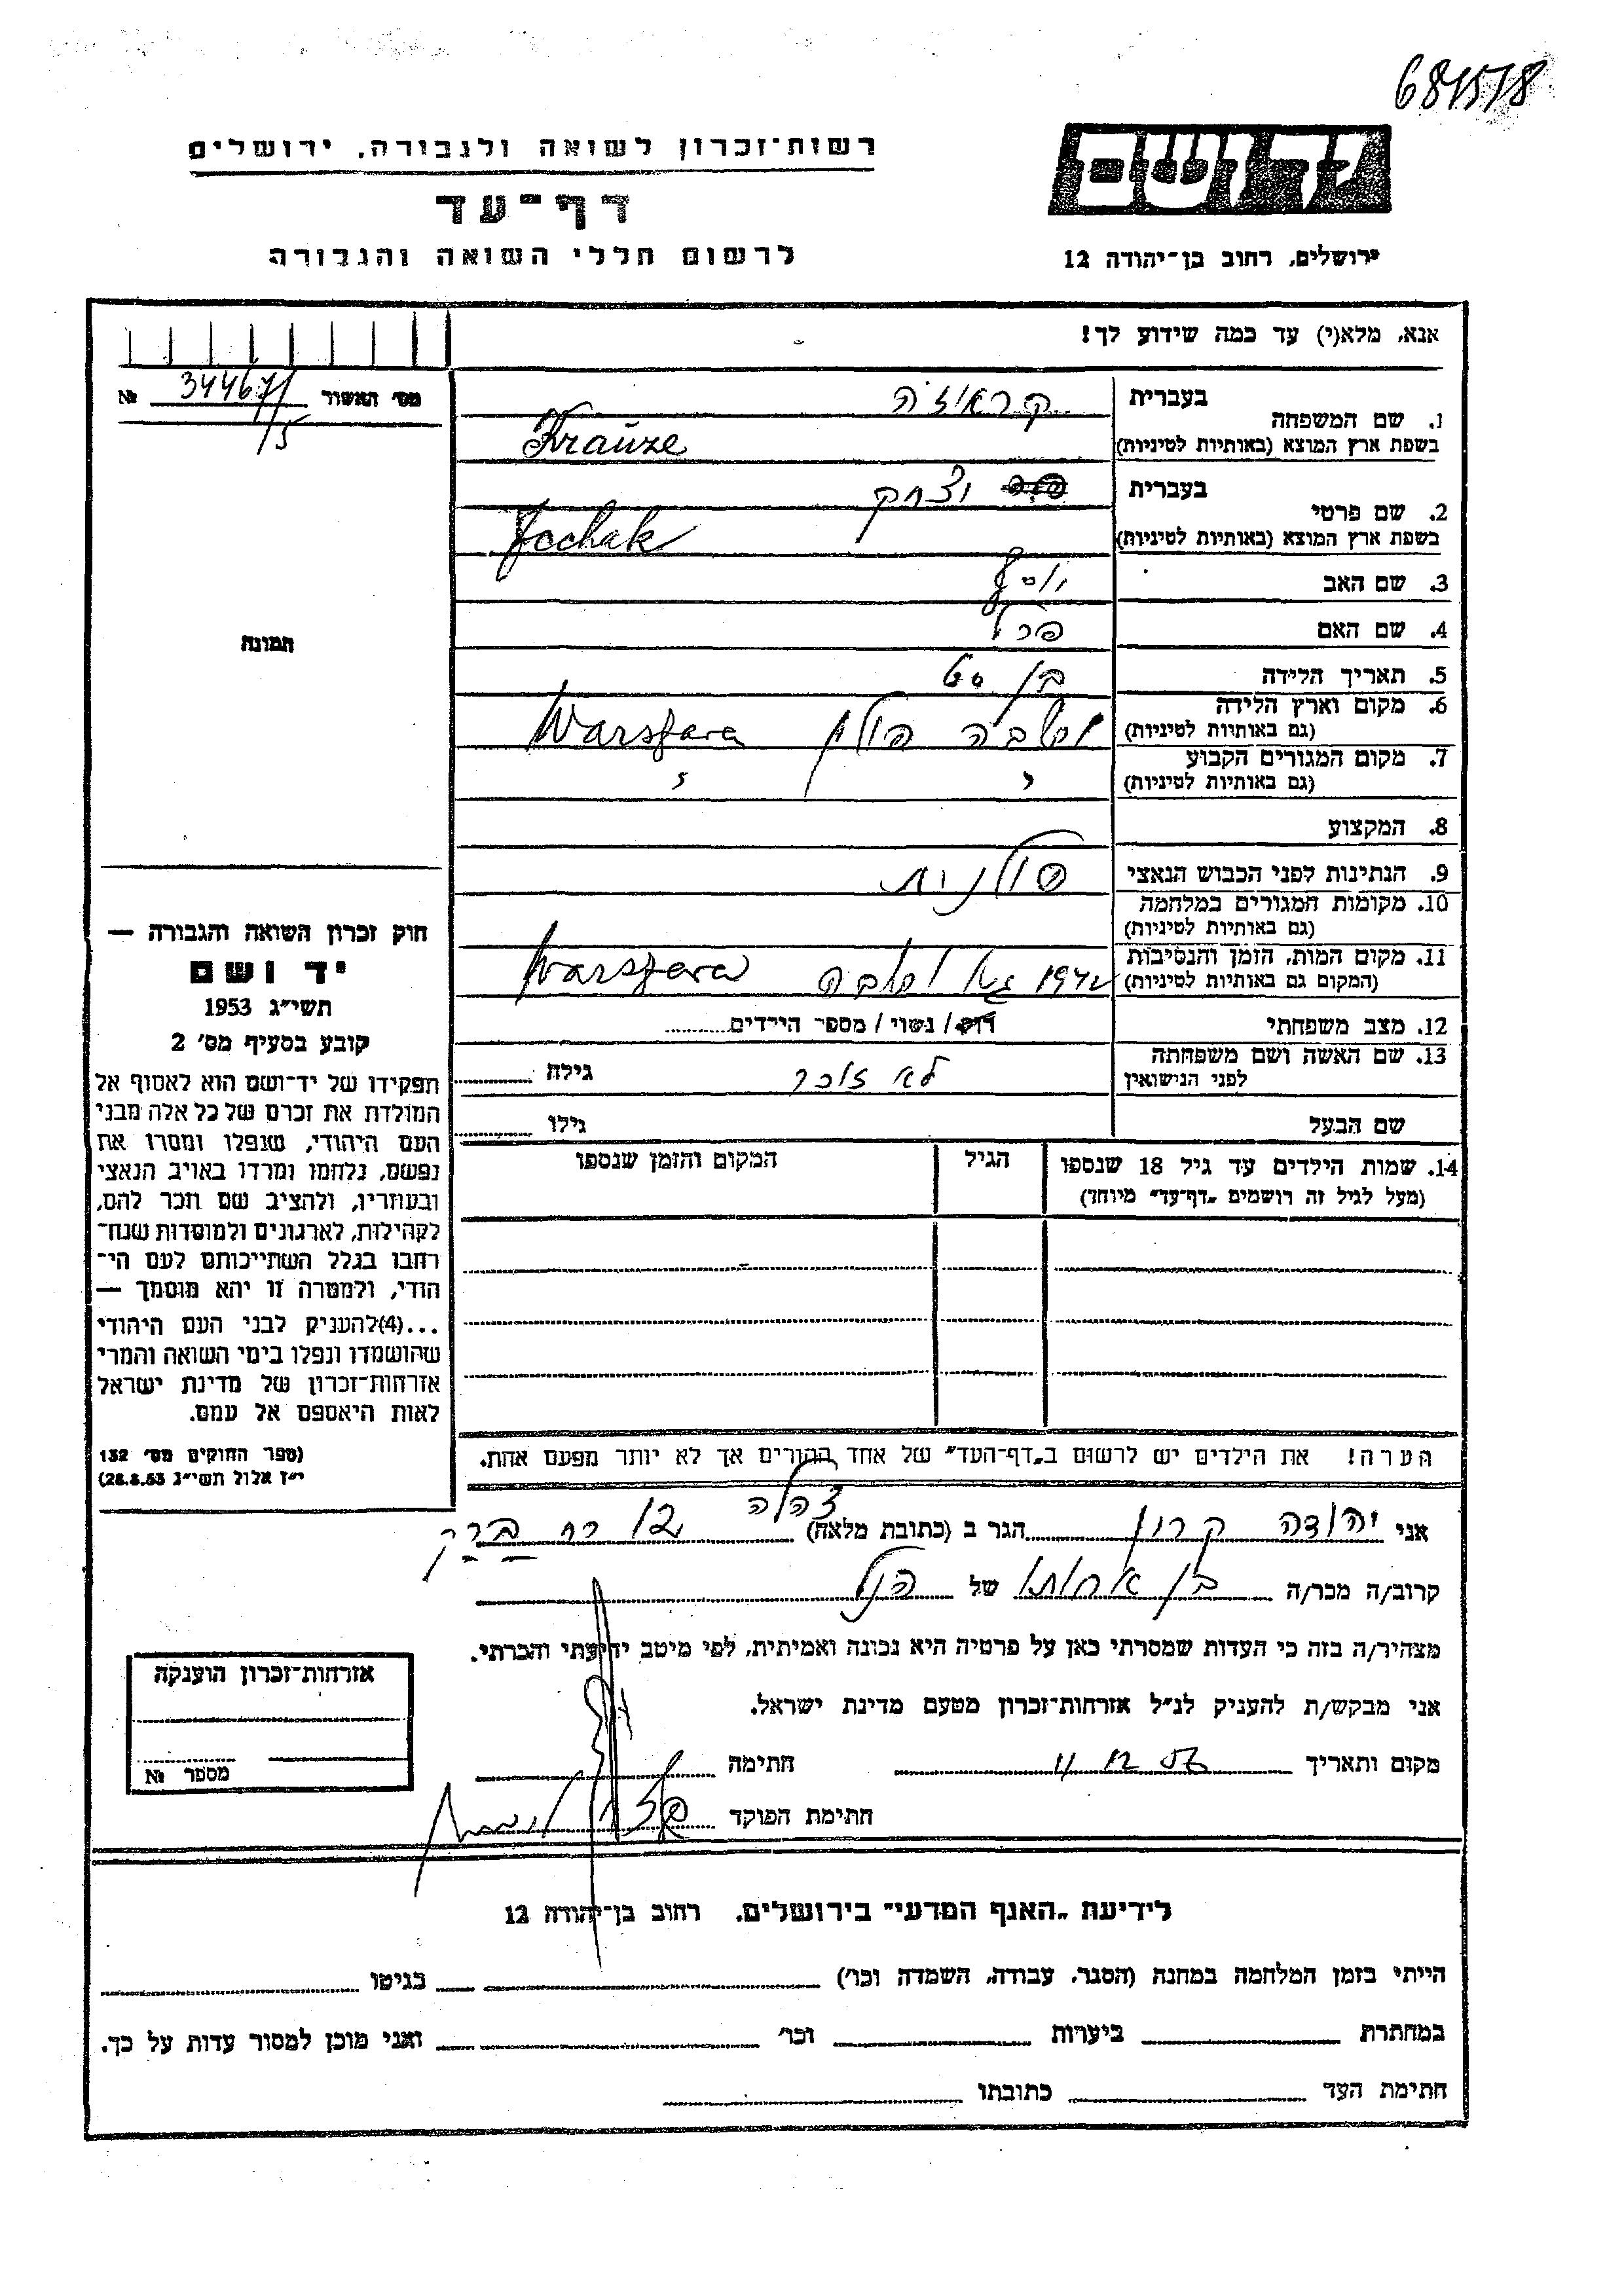 681518
ידושם
רשות־זכרון לשואה ולגבורה, ירושלים
דף־עד
לרשום חללי השואה והגבורה
ירושלים, רחוב בן־יהודה 12
אנא, מלא(י) עד כמה שידוע לך!
מס׳ האשור 344671/5 №
בעברית קראוזה
1. שם המשפחה
בשפת ארץ המוצא (באותיות לטיניות) Krauze
בעברית יצחק
2. שם פרטי
בשפת ארץ המוצא (באותיות לטיניות) Jcchak
3. שם האב יוסף
4. שם האם פרל
5. תאריך הלידה בן 60
6. מקום וארץ הלידה
(גם באותיות לטיניות) ורשבה פולין Warszawa
7. מקום המגורים הקבוע
(גם באותיות לטיניות) " "
8. המקצוע
9. הנתינות לפני הכבוש הנאצי פולנית
10. מקומות המגורים במלחמה
(גם באותיות לטיניות)
11. מקום המות, הזמן והנסיבות
(המקום גם באותיות לטיניות) 1942 גטו ורשבה Warszawa
12. מצב משפחתי רוק / נשוי / מספר הילדים
13. שם האשה ושם משפחתה
לפני הנישואין לא זוכר גילה
שם הבעל גילו
14. שמות הילדים עד גיל 18 שנספו הגיל המקום והזמן שנספו
(מעל לגיל זה רושמים „דף־עד״ מיוחד)
הערה! את הילדים יש לרשום ב„דף־העד״ של אחד ההורים אך לא יותר מפעם אחת.
תמונה
חוק זכרון השואה והגבורה —
יד ושם
תשי״ג 1953
קובע בסעיף מס׳ 2
תפקידו של יד־ושם הוא לאסוף אל
המולדת את זכרם של כל אלה מבני
העם היהודי, שנפלו ומסרו את
נפשם, נלחמו ומרדו באויב הנאצי
ובעוזריו, ולהציב שם וזכר להם,
לקהילות, לארגונים ולמוסדות שנח־
רבו בגלל השתייכותם לעם הי־
הודי, ולמטרה זו יהא מוסמך —
...(4)להעניק לבני העם היהודי
שהושמדו ונפלו בימי השואה והמרי
אזרחות־זכרון של מדינת ישראל
לאות היאספם אל עמם.
(ספר החוקים מס׳ 132
י״ז אלול תשי״ג 28.8.53)
אני יהודה קרון הגר ב (כתובת מלאה) צהלה בני ברק
קרוב/ה מכר/ה בן אחותו של הנ״ל
מצהיר/ה בזה כי העדות שמסרתי כאן על פרטיה היא נכונה ואמיתית, לפי מיטב ידיעתי והכרתי.
אני מבקש/ת להעניק לנ״ל אזרחות־זכרון מטעם מדינת ישראל.
מקום ותאריך 11 12 56 חתימה
חתימת הפוקד
אזרחות־זכרון הוענקה
מספר №
לידיעת „האגף המדעי״ בירושלים, רחוב בן־יהודה 12
הייתי בזמן המלחמה במחנה (הסגר, עבודה, השמדה וכו׳) בגיטו
במחתרת ביערות וכו׳ ואני מוכן למסור עדות על כך.
חתימת העד כתובתו